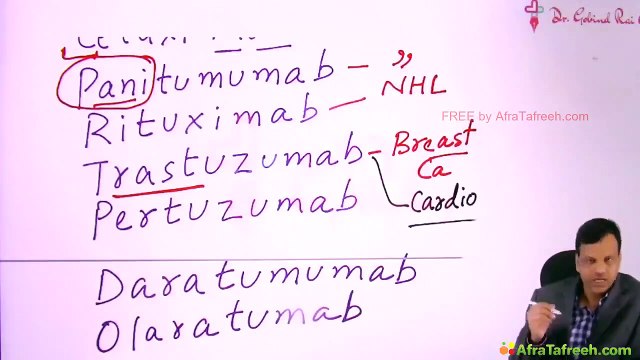 Dr. Gobind Rai
Panitumumab - ,,
NHL
Rituximab -
FREE by AfraTafreeh.com
Trastuzumab - Breast
Ca
Cardio
Pertuzumab
Daratumumab
Olaratumab
AfraTafreeh.com